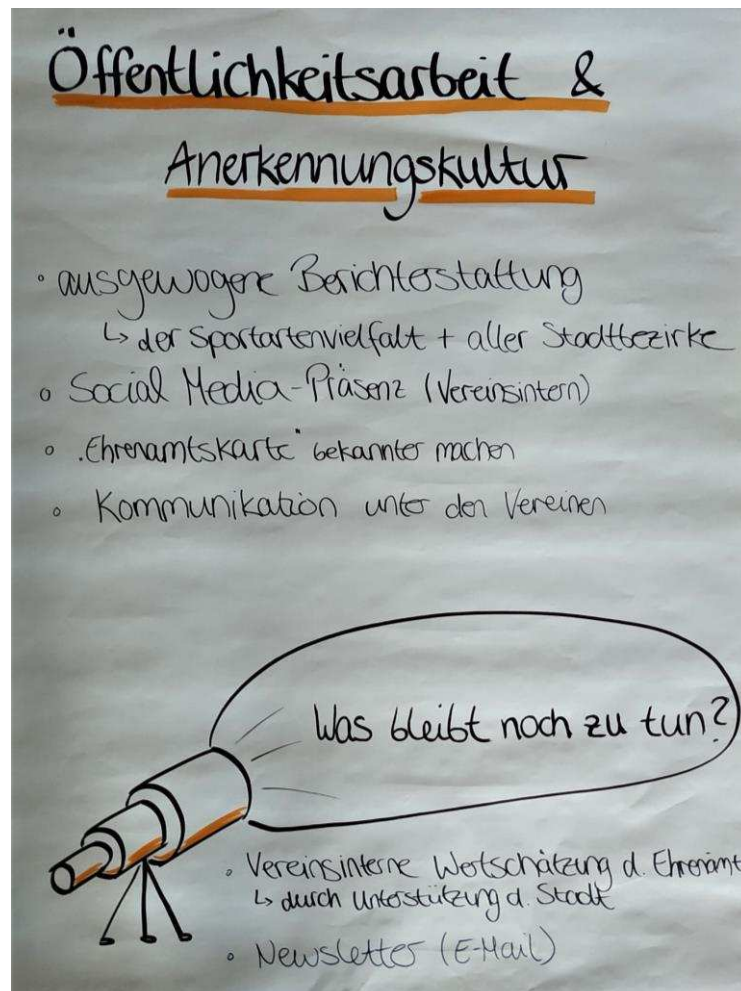 Öffentlichkeitsarbeit &
Anerkennungskultur
◦ ausgewogene Berichterstattung
↳ der Sportartenvielfalt + aller Stadtbezirke
◦ Social Media-Präsenz (Vereinsintern)
◦ "Ehrenamtskarte" bekannter machen
◦ Kommunikation unter den Vereinen
Was bleibt noch zu tun?
◦ Vereinsinterne Wertschätzung d. Ehrenamt
↳ durch Unterstützung d. Stadt
◦ Newsletter (E-Mail)